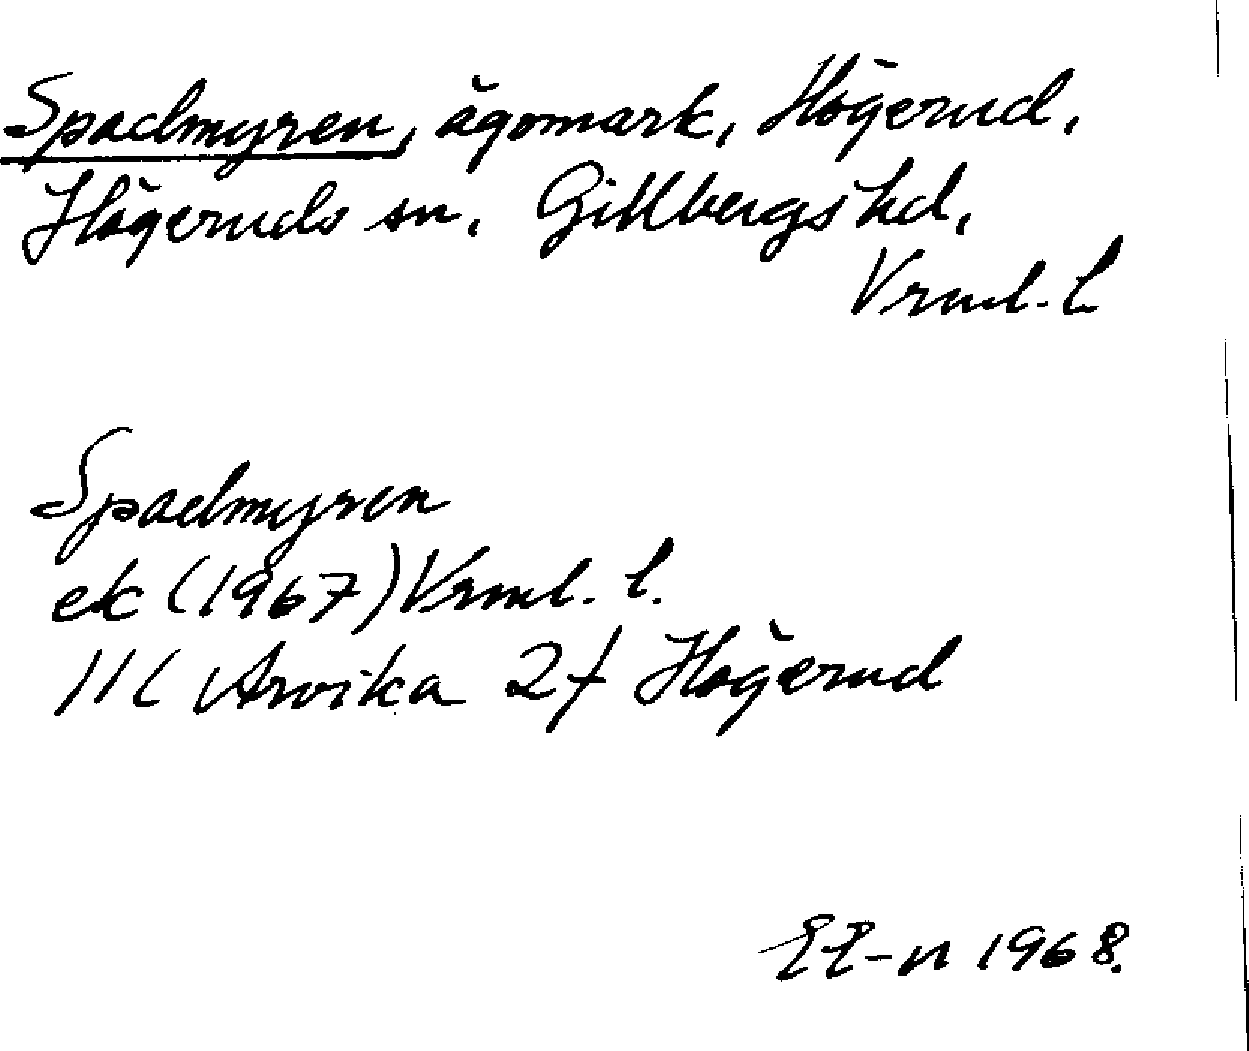 Spadmyren, ägomark, Högerud,
Högeruds sn, Gillbergs hd,
Vrml. l
Spadmyren
ek (1967) Vrml. l.
11C Arvika 2f Högerud
EE-n 1968.